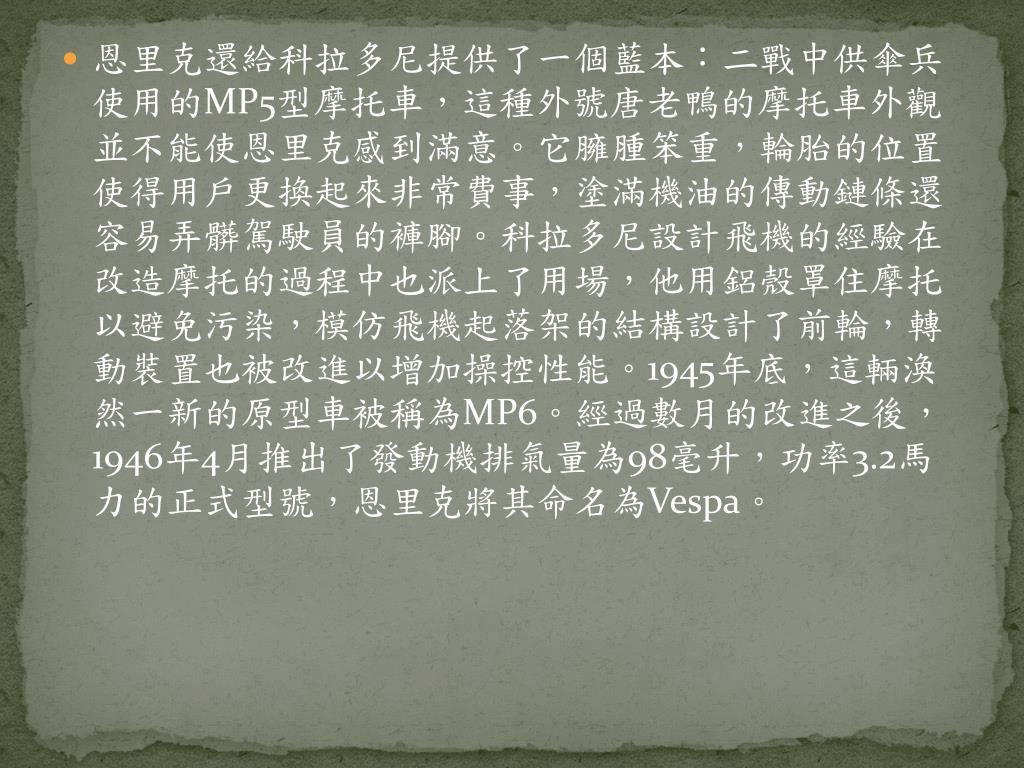 恩里克還給科拉多尼提供了一個藍本：二戰中供傘兵
使用的MP5型摩托車，這種外號唐老鴨的摩托車外觀
並不能使恩里克感到滿意。它臃腫笨重，輪胎的位置
使得用戶更換起來非常費事，塗滿機油的傳動鏈條還
容易弄髒駕駛員的褲腳。科拉多尼設計飛機的經驗在
改造摩托的過程中也派上了用場，他用鋁殼罩住摩托
以避免污染，模仿飛機起落架的結構設計了前輪，轉
動裝置也被改進以增加操控性能。1945年底，這輛渙
然一新的原型車被稱為MP6。經過數月的改進之後，
1946年4月推出了發動機排氣量為98毫升，功率3.2馬
力的正式型號，恩里克將其命名為Vespa。